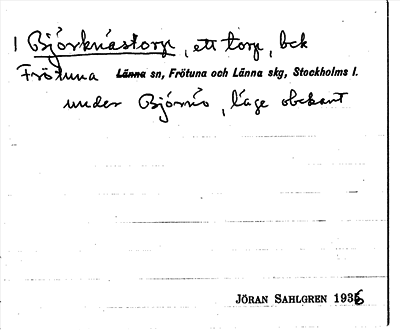 1 Björknästorp, ett torp, bek
Frötuna Länna sn, Frötuna och Länna skg, Stockholms l.
under Björnö, läge obekant
JÖRAN SAHLGREN 1936